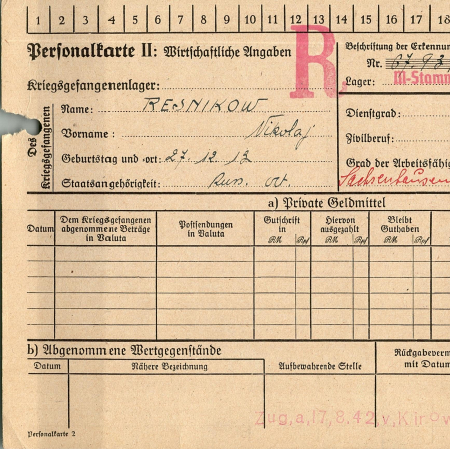 1 2 3 4 5 6 7 8 9 10 11 12 13 14 15 16 17 18
Personalkarte II: Wirtschaftliche Angaben
R
Beschriftung der Erkennun
Nr.
Kriegsgefangenenlager:
Lager: M-Stamm
Des Kriegsgefangenen
Name: RESNIKOW
Vorname: Nikolaj
Geburtstag und -ort: 27. 12. 12
Staatsangehörigkeit: Russ.
Dienstgrad:
Zivilberuf:
Grad der Arbeitsfähig
Sachsenhausen
a) Private Geldmittel
Datum
Dem Kriegsgefangenen abgenommene Beträge in Valuta
Postsendungen in Valuta
Gutschrift in
RM Rpf
Hiervon ausgezahlt
RM Rpf
Bleibt Guthaben
RM Rpf
b) Abgenommene Wertgegenstände
Datum
Nähere Bezeichnung
Aufbewahrende Stelle
Rückgabeverm
mit Datum
Zug,a,17,8.42,v,Kirov
Personalkarte 2